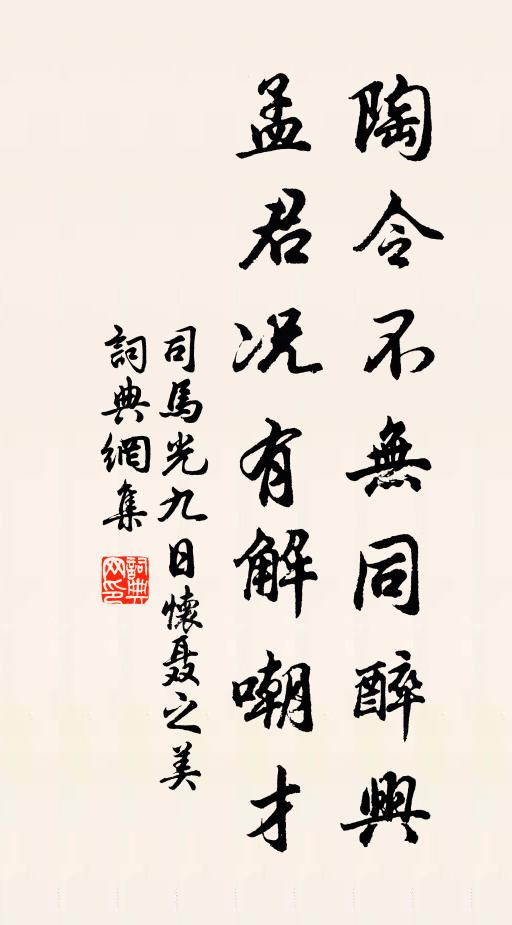 陶令不無同醉興
孟君况有解嘲才
司馬光九日懷聂之美
詞典網集
詞典
网印